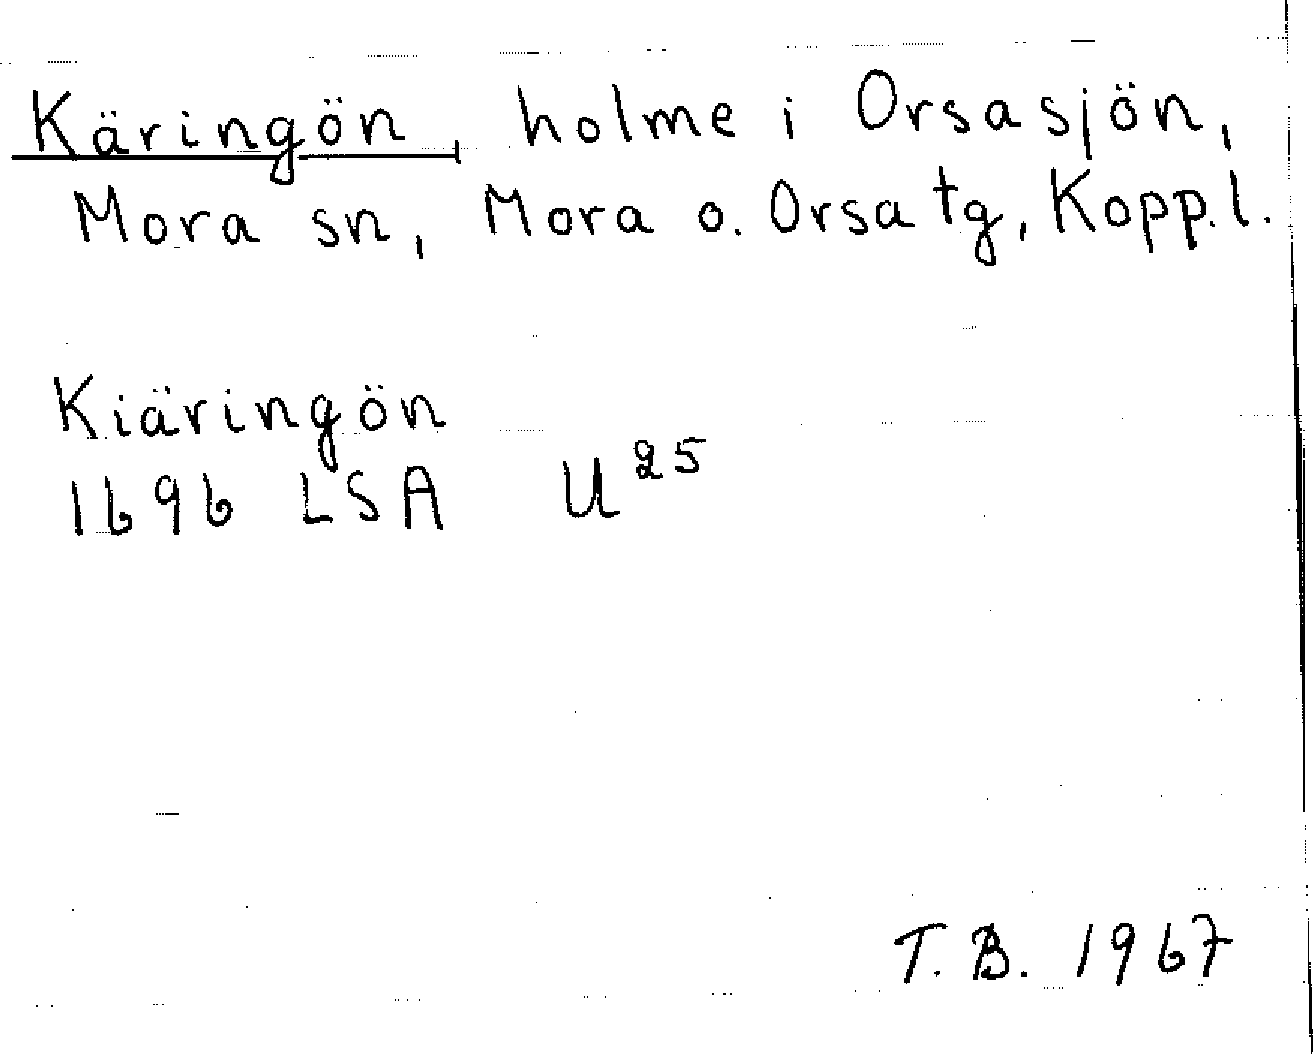 Käringön, holme i Orsasjön,
Mora sn, Mora o. Orsa tg, Kopp.l.
Kiäringön
1696 LSA U²⁵
T.B. 1967